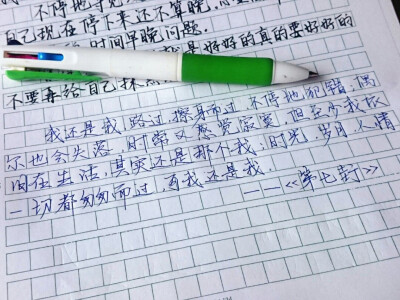 不停地
自己现在停下来还不算晚,
时间早晚问题.
好好的真的要好好的
不要再给自己
我还是我,路过,擦身而过,不停地犯错,偶
尔也会失落,时常又感觉寂寞,但至少我依
旧在生活,其实还是那个我;时光,岁月,人情
一切都匆匆而过,而我还是我.
——《第七封》